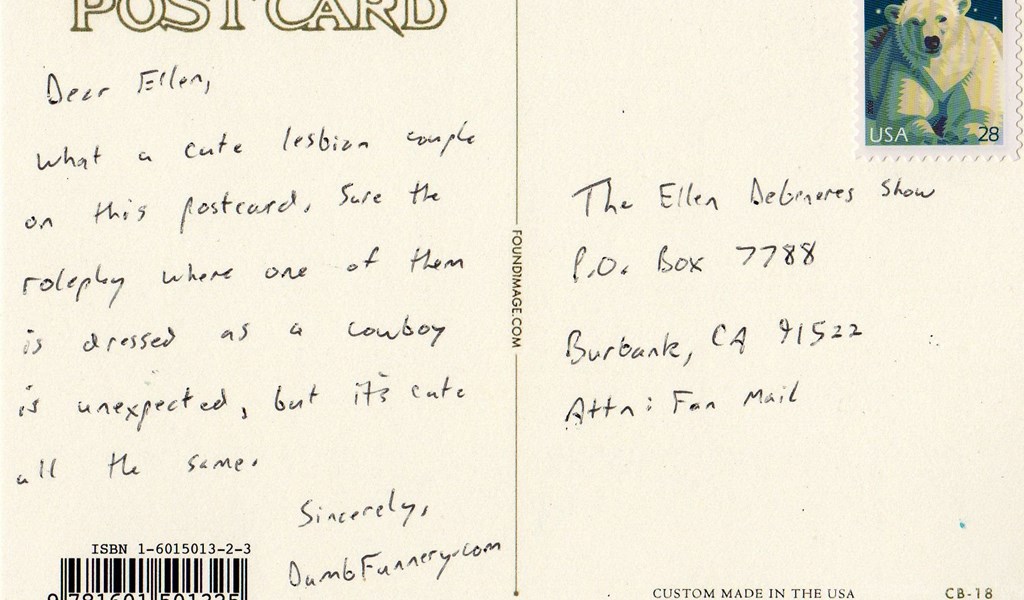 POSTCARD
Dear Ellen,
what a cute lesbian couple
on this postcard. Sure the
roleplay where one of them
is dressed as a cowboy
is unexpected, but it's cute
all the same.
Sincerely,
DumbFunnery.com
ISBN 1-6015013-2-3
9 781601 501325
FOUNDIMAGE.COM
USA 28
The Ellen DeGeneres Show
P.O. Box 7788
Burbank, CA 91522
Attn: Fan Mail
CUSTOM MADE IN THE USA
CB-18